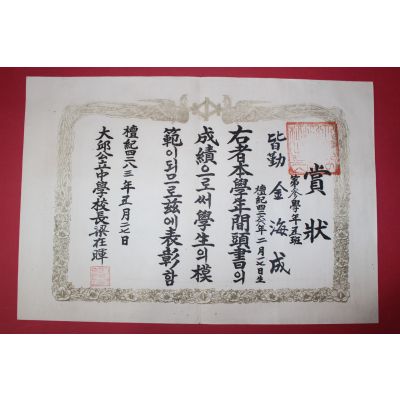 賞狀
第参學年五班
皆勤 金海成
檀紀四二六六年二月一七日生
右者本學年間頭書의
成績으로써學生의模
範이되므로玆에表彰함
檀紀四二八三年五月六日
大邱公立中學校長梁在暉